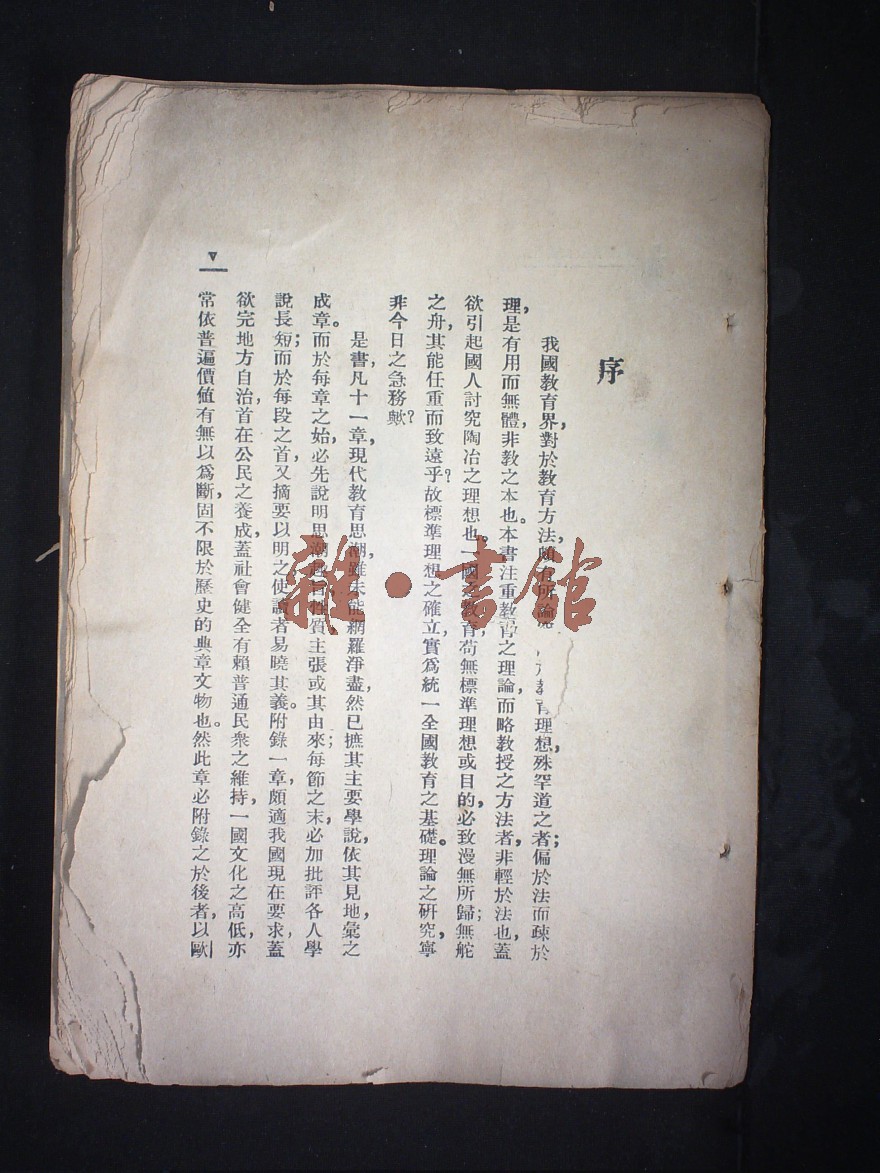 序
我國教育界，對於教育方法，頗有所論 教育理想，殊罕道之者；偏於法而疎於
理，是有用而無體，非教之本也。本書注重教育之理論，而略教授之方法者，非輕於法也，蓋
欲引起國人討究陶冶之理想也。一國之教育，苟無標準理想或目的，必致漫無所歸；無舵
之舟，其能任重而致遠乎？故標準理想之確立，實爲統一全國教育之基礎。理論之硏究，寧
非今日之急務歟？
是書，凡十一章，現代教育思潮，雖未能網羅淨盡，然已摭其主要學說，依其見地，彙之
成章。而於每章之始，必先說明思潮 性質主張或其由來；每節之末，必加批評各人學
說長短；而於每段之首，又摘要以明之，使讀者易曉其義。附錄一章，頗適我國現在要求，蓋
欲完地方自治，首在公民之養成，蓋社會健全有賴普通民衆之維持，一國文化之高低，亦
常依普遍價値有無以爲斷，固不限於歷史的典章文物也。然此章必附錄之於後者，以歐
雜·書館